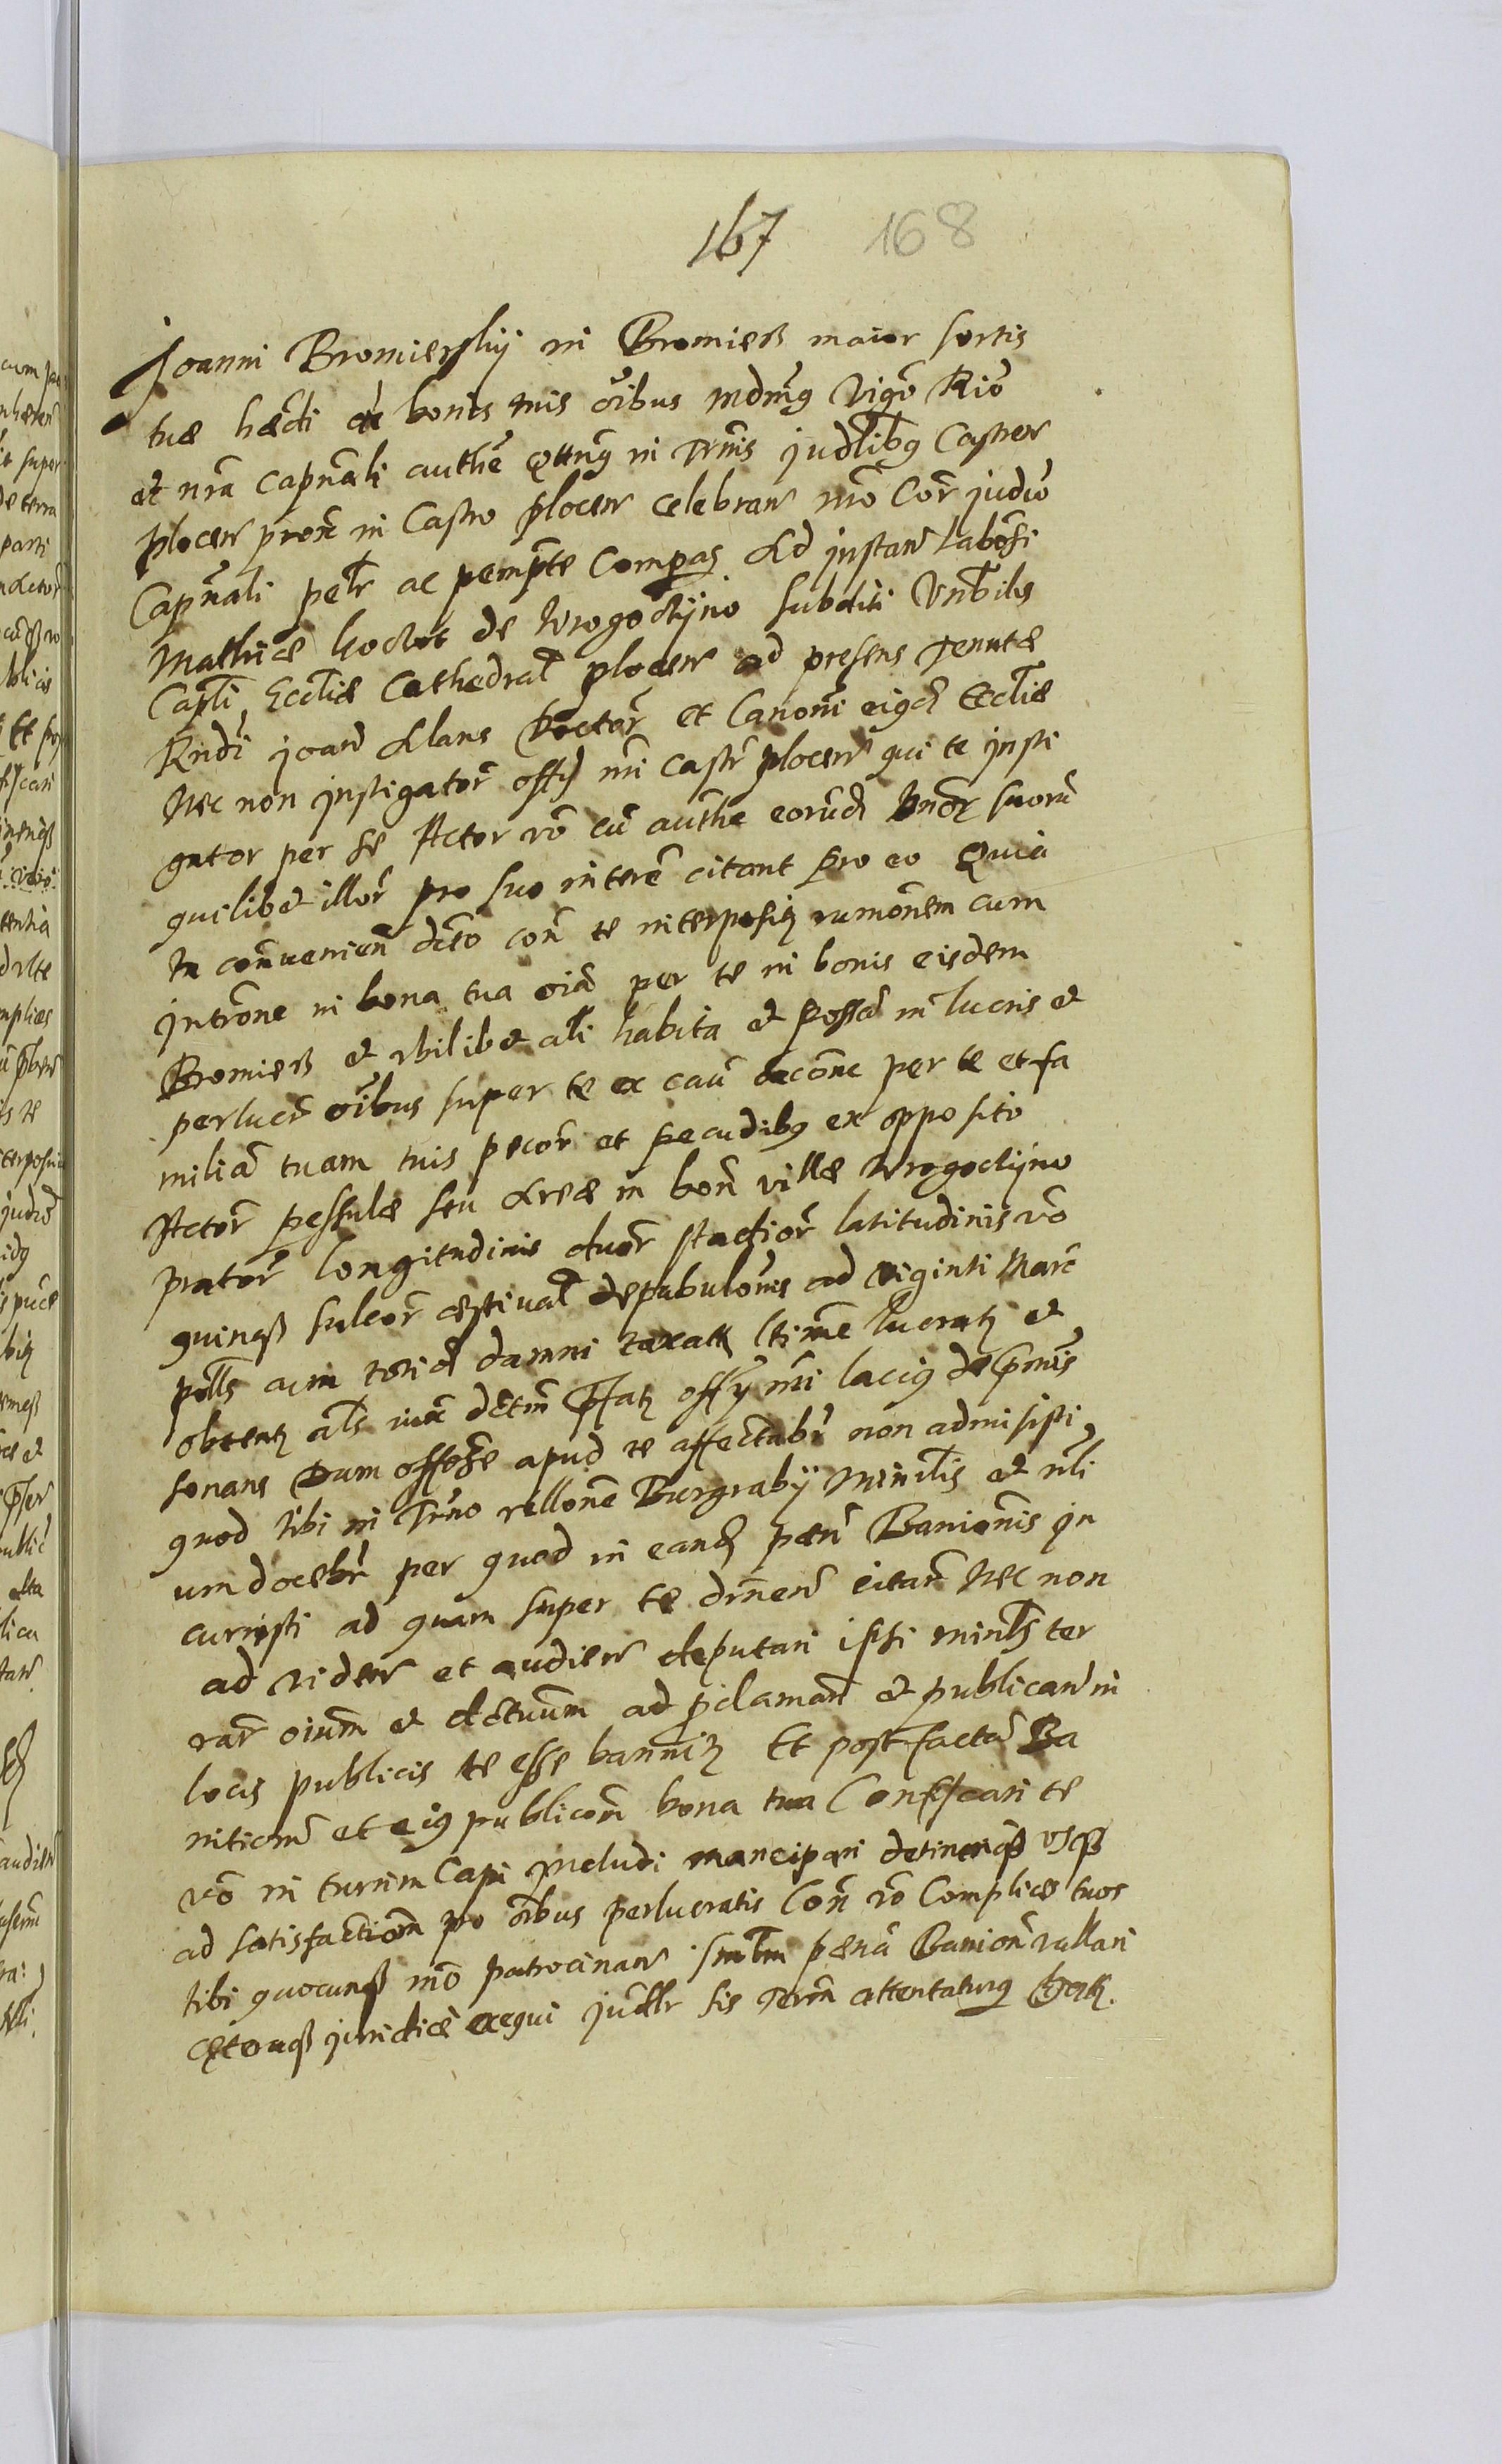 167 168
Joanni Bromierskij in Bromierz maior sortis
tuæ hædi de bonis tuis oibus mdmg vigo Rio
et nra capnali authe qtng in Trnis judlibg Castren
plocen pron in Castro plocen celebran mo Cor judio
Capnali petr ac pempte Comparas Ad instan labosi
Mathiæ kochot de Wrogoczijno subditi Vnbilis
Capli Eccliæ Cathedral plocen ad presens tenutæ
Rndi joan Alans Doctor et Canoni eigd Eccliæ
Nec non instigator offy nri castr plocen qui te insti
gator per se Actor vo cu authe eorud Dnor suoru
quilibet illor pro suo intere citant Pro eo Quia
tu conuenien dcto con te interposit rumonem cum
introne in bona tua oia per te in bonis eisdem
Bromierz et vbilibet ali habita et possa in lucris et
perlucr oibus super te ex cau occone per te et fa
milia tuam tuis pecor et pecudibg ex opposito
Actor pessulæ seu Areæ in bon villæ Wrogoczijno
prator longitudinis duor stadior latitudinis vo
quinqz sulcor æstiual depabulonis ad viginti Marc
plls cum totid damni taxatt ltime lucrat et
obtent als iux detm Pfat offy nri lacig depmis
sonans Dum offose apud te affectabr non admisisti
quod tibi in Trno rellone Burgrabij Minilis et nli
um docebr per quod in eand pen Banionis in
curristi ad quam super te drnen citaris Nec non
ad viden et audien deputari ipsi ministter
rar oium et dctuum ad pclaman et publican in
locis publicis te esse bannit Et post facta Ba
nitiom et eig publicom bona tua Confiscari te
vo in turrim Capi includi mancipari detineriqz vsqz
ad satisfactiom pro oibus perlucratis Con vo Complices tuos
tibi quocunqz mo patrocinan simlm pæna Banion vallari
Cætoaqz juridice exequi judlr sis Term attentaturg